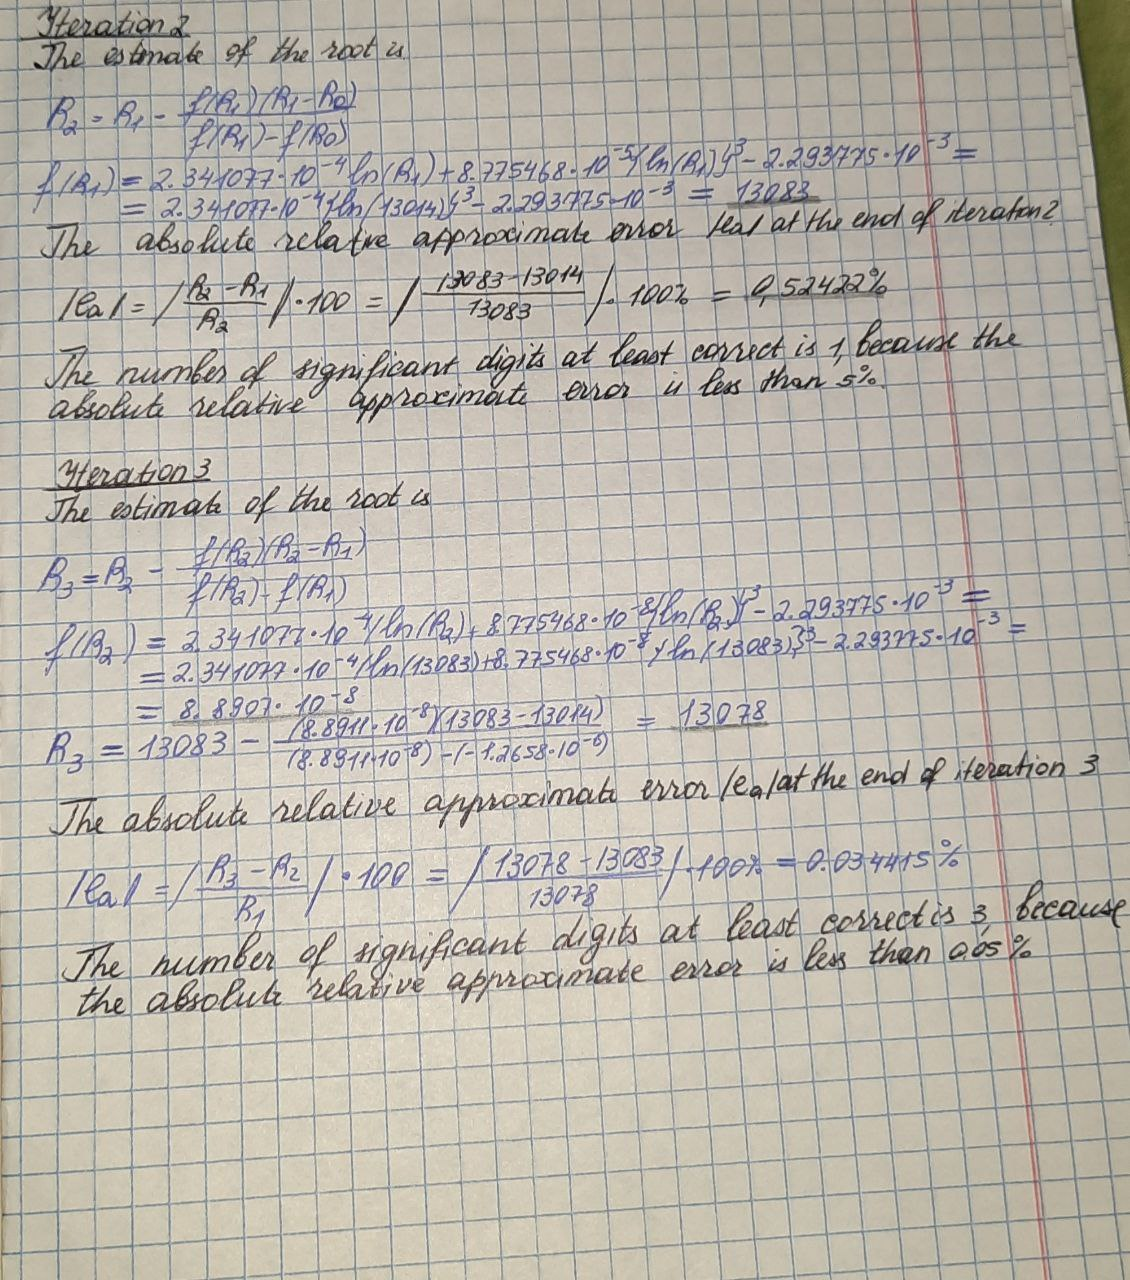 Iteration 2
The estimate of the root is
R₂ = R₁ - f(R₁)(R₁-R₀) / f(R₁)-f(R₀)
f(R₁) = 2.341077·10⁻⁴ ln(R₁)+8.775468·10⁻⁵{ln(R₁)}³ - 2.293775·10⁻³ =
= 2.341077·10⁻⁴{ln(13014)}³ - 2.293775·10⁻³ = 13083
The absolute relative approximate error |ea| at the end of iteration 2
|ea| = |R₂-R₁ / R₂|·100 = |13083-13014 / 13083|·100% = 0,52422%
The number of significant digits at least correct is 1, because the
absolute relative approximate error is less than 5%.
Iteration 3
The estimate of the root is
R₃ = R₂ - f(R₂)(R₂-R₁) / f(R₂)-f(R₁)
f(R₂) = 2.341077·10⁻⁴(ln(R₂)+8.775468·10⁻⁸{ln(R₂)}³ - 2.293775·10⁻³ =
= 2.341077·10⁻⁴(ln(13083)+8.775468·10⁻⁸{ln(13083)}³ - 2.293775·10⁻³ =
= 8.8907·10⁻⁸
R₃ = 13083 - (8.8911·10⁻⁸)(13083-13014) / (8.8911·10⁻⁸)-(-1.2658·10⁻⁶) = 13078
The absolute relative approximate error |ea| at the end of iteration 3
|ea| = |R₃-R₂ / R₁|·100 = |13078-13083 / 13078|·100% = 0.034415%
The number of significant digits at least correct is 3, because
the absolute relative approximate error is less than 0,05%